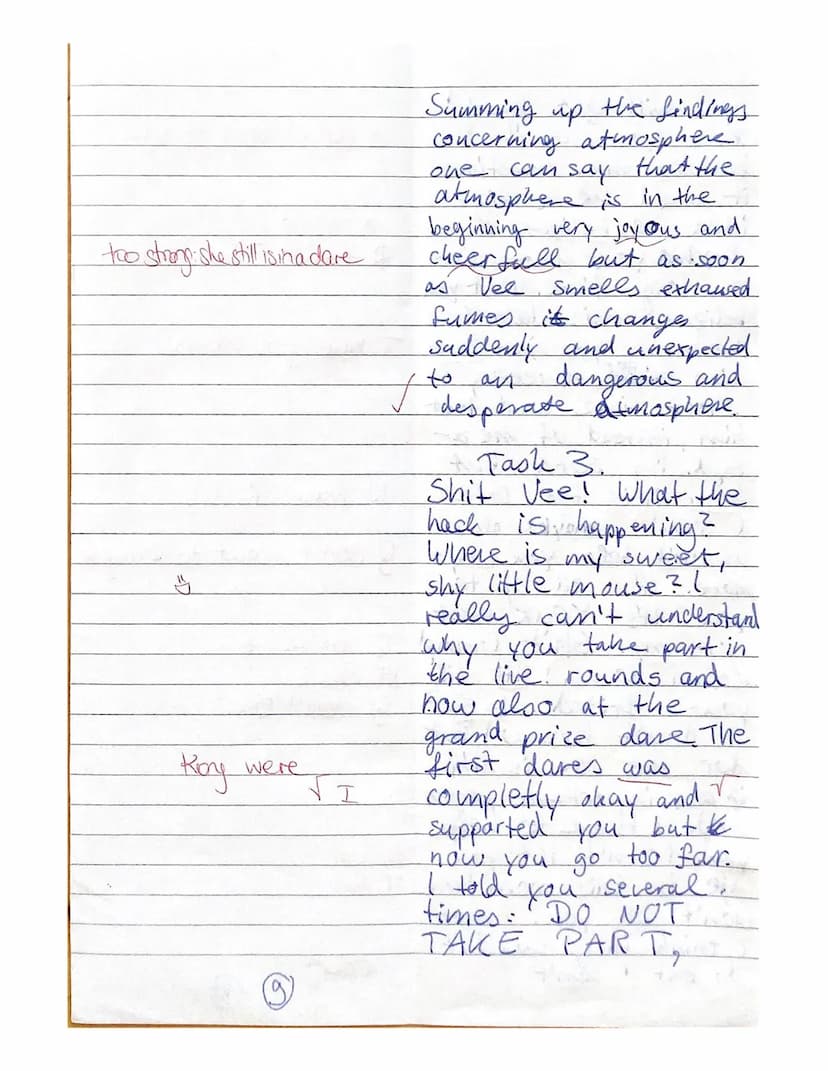 Summing up the findings
concerning atmosphere
one can say that the
atmosphere is in the
beginning very joyous and
too strong: she still is in a dare
cheerfull but as soon
as Vee smells exhaused
fumes it changes
suddenly and unexpected
to an dangerous and
√
desperate atmosphere.
Task 3.
Shit Vee! What the
hack is happening?
Where is my sweet,
shy little mouse? I
really can't understand
why you take part in
the live rounds and
now also at the
grand prize dare. The
Kong were
first dares was
√ I
completly okay and √
supported you but
now you go too far.
I told you several
times: DO NOT
TAKE PART,
9